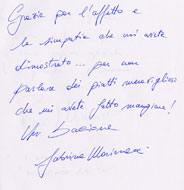 Grazie per l'affetto e
la simpatia che mi avete
dimostrato... per non
parlare dei piatti meravigliosi
che mi avete fatto mangiare!
Un bacione
Sabrina